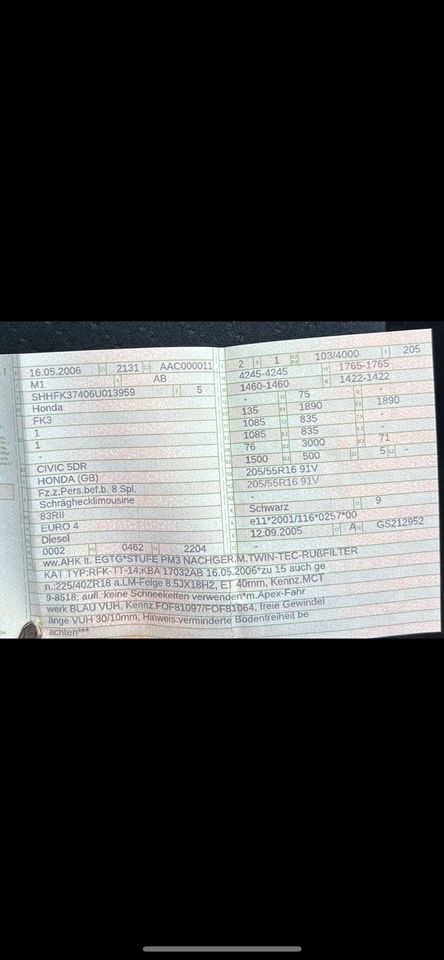 16.05.2006 2131 AAC000011
M1 AB
SHHFK37406U013959 5
Honda
FK3
1
1
-
CIVIC 5DR
HONDA (GB)
Fz.z.Pers.bef.b. 8 Spl.
Schräghecklimousine
83RII
EURO 4
Diesel
0002 0462 2204
2 1 103/4000 205
4245-4245 1765-1765
1460-1460 1422-1422
- 75 -
135 1890 1890
1085 835 -
1085 835 -
76 3000 71
1500 500 5 -
205/55R16 91V
205/55R16 91V
-
Schwarz 9
e11*2001/116*0257*00
12.09.2005 A GS212952
-
ww.AHK lt. EGTG*STUFE PM3 NACHGER.M.TWIN-TEC-RUßFILTER
KAT TYP:RFK-TT-14;KBA 17032AB 16.05.2006*zu 15 auch ge
n.:225/40ZR18 a.LM-Felge 8.5JX18H2, ET 40mm, Kennz.MCT
9-8518; aufl.:keine Schneeketten verwenden*m.Apex-Fahr
werk BLAU VUH, Kennz.FOF81097/FOF81064, freie Gewindel
änge VUH 30/10mm, Hinweis:verminderte Bodenfreiheit be
achten***